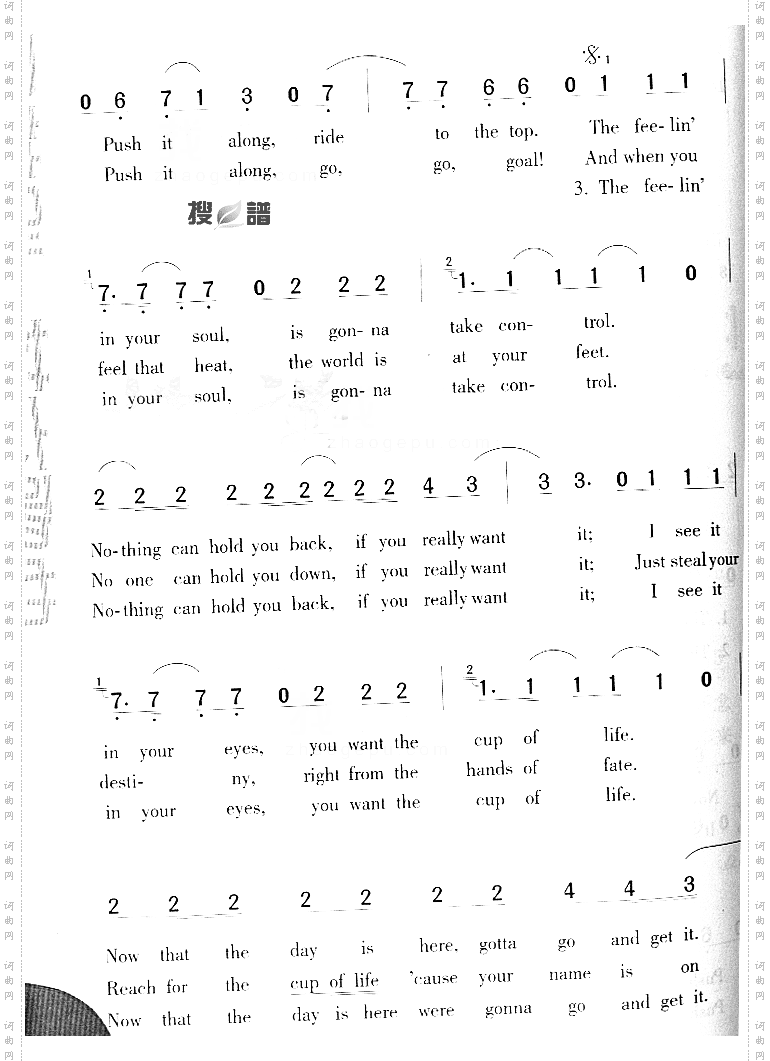 0 6 7 1 3 0 7 | 7 7 6 6 0 1 1 1 |
Push it along, ride to the top. The fee- lin'
Push it along, go, go, goal! And when you
3. The fee- lin'
搜 譜
7. 7 7 7 0 2 2 2 | 1. 1 1 1 1 0 |
in your soul, is gon- na take con- trol.
feel that heat, the world is at your feet.
in your soul, is gon- na take con- trol.
2 2 2 2 2 2 2 2 2 4 3 | 3 3. 0 1 1 1 |
No-thing can hold you back, if you really want it; I see it
No one can hold you down, if you really want it; Just steal your
No-thing can hold you back, if you really want it; I see it
7. 7 7 7 0 2 2 2 | 1. 1 1 1 1 0 |
in your eyes, you want the cup of life.
desti- ny, right from the hands of fate.
in your eyes, you want the cup of life.
2 2 2 2 2 2 2 4 4 3
Now that the day is here, gotta go and get it.
Reach for the cup of life 'cause your name is on
Now that the day is here were gonna go and get it.